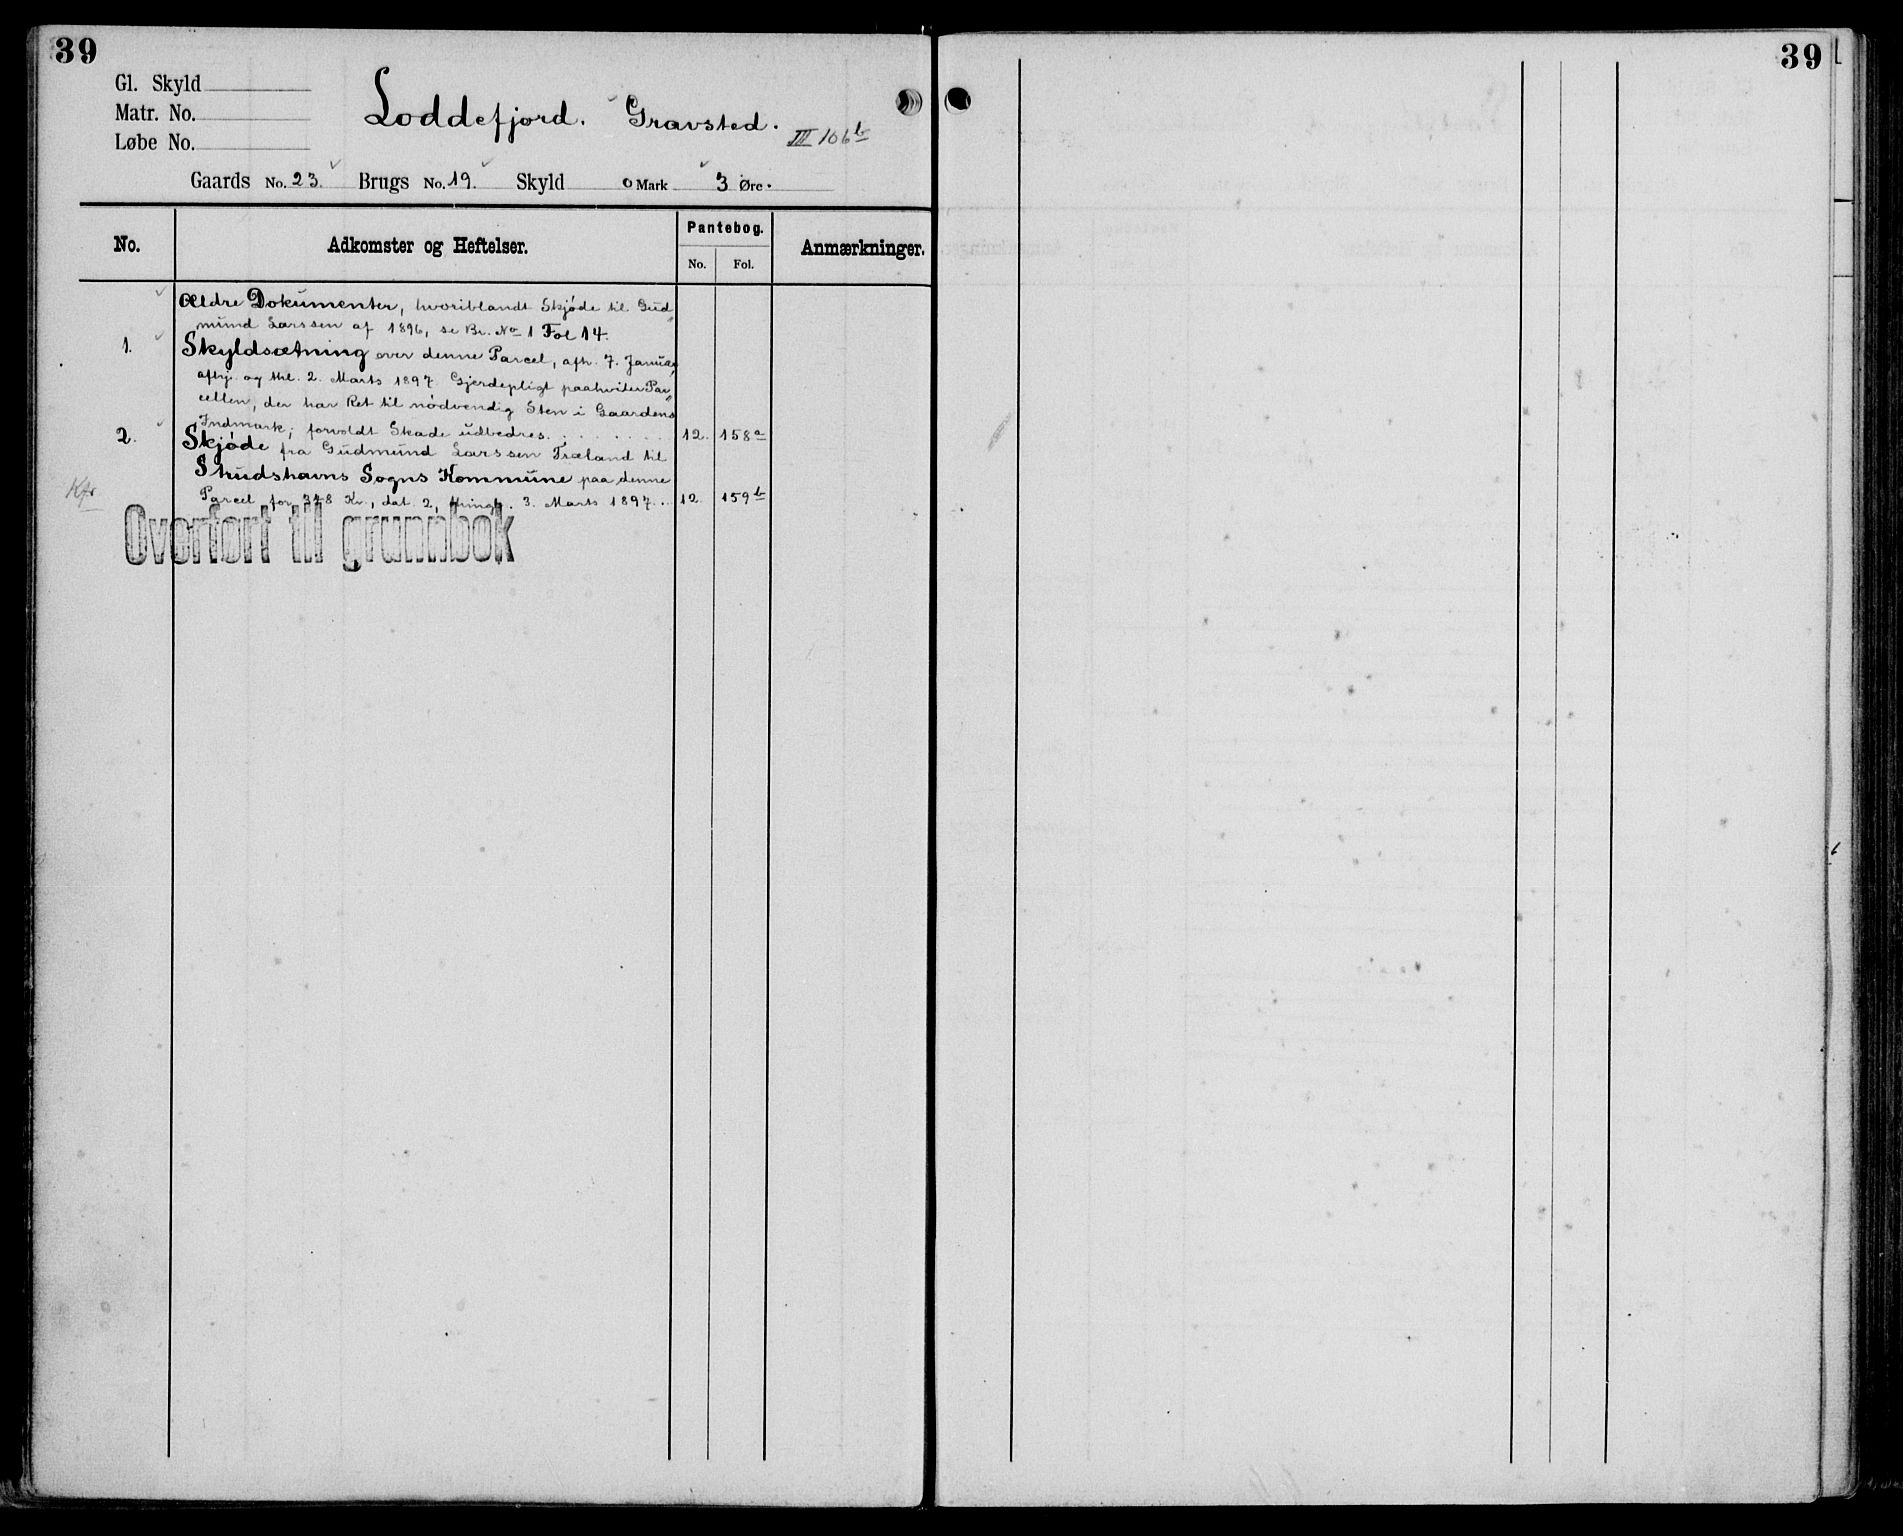 39
39
Gl. Skyld
Matr. No.
Løbe No.
Loddefjord. Gravsted.
III 106b
Gaards No. 23. Brugs No. 19. Skyld 0 Mark 3 Øre.
No. Adkomster og Heftelser. Pantebog. Anmærkninger.
No. Fol.
Ældre Dokumenter, hvoriblandt Skjøde til Gud=
mund Larssen af 1896, se Br. No 1 Fol 14.
1. Skyldsætning over denne Parcel, afh. 7. Januar,
afhj. og thl. 2. Marts 1897. Gjerdepligt paahviler Par=
cellen, der har Ret til nödvendig Sten i Gaardens
Indmark; forvoldt Skade udbedres. . . . . . . . 12. 158a
2. Skjøde fra Gudmund Larssen Træland til
Strudshavns Sogns Kommune paa denne
Parcel for 348 Kr., dat. 2, thingl. 3. Marts 1897. . . 12. 159b
Overført til grunnbok